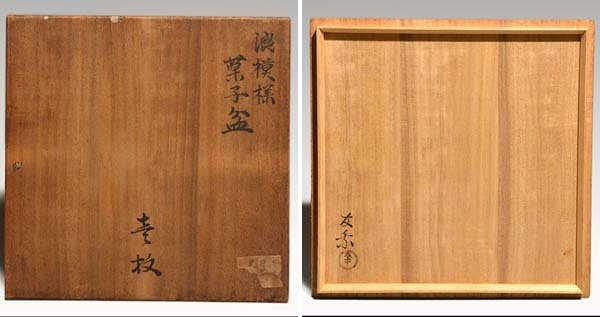 浪模様
菓子盆
壱枚
友斎